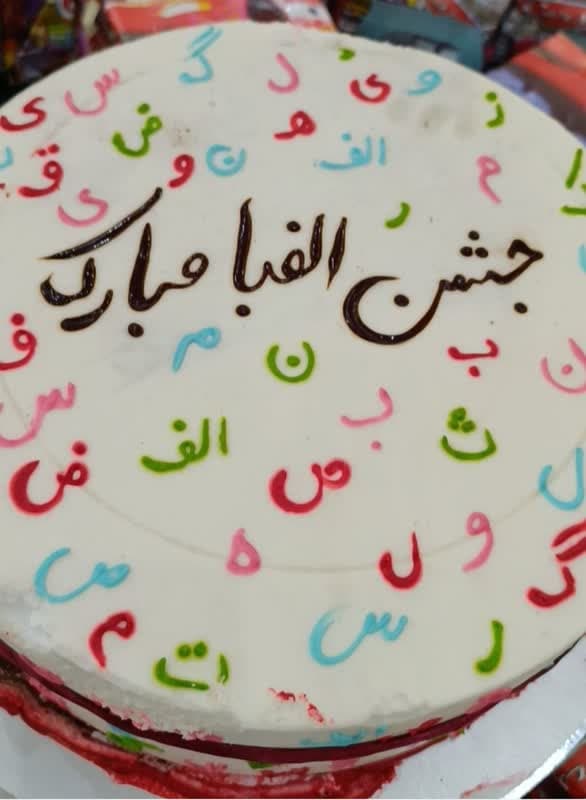 س گ د ی و ذ
ی ض ه الف م
ق و ن
ی ر
جشن الفبا مبارک
م
ف ن ب ن
س ب
الف ث
ض ص ل
ه و
ص ل گ
م س ر
ت